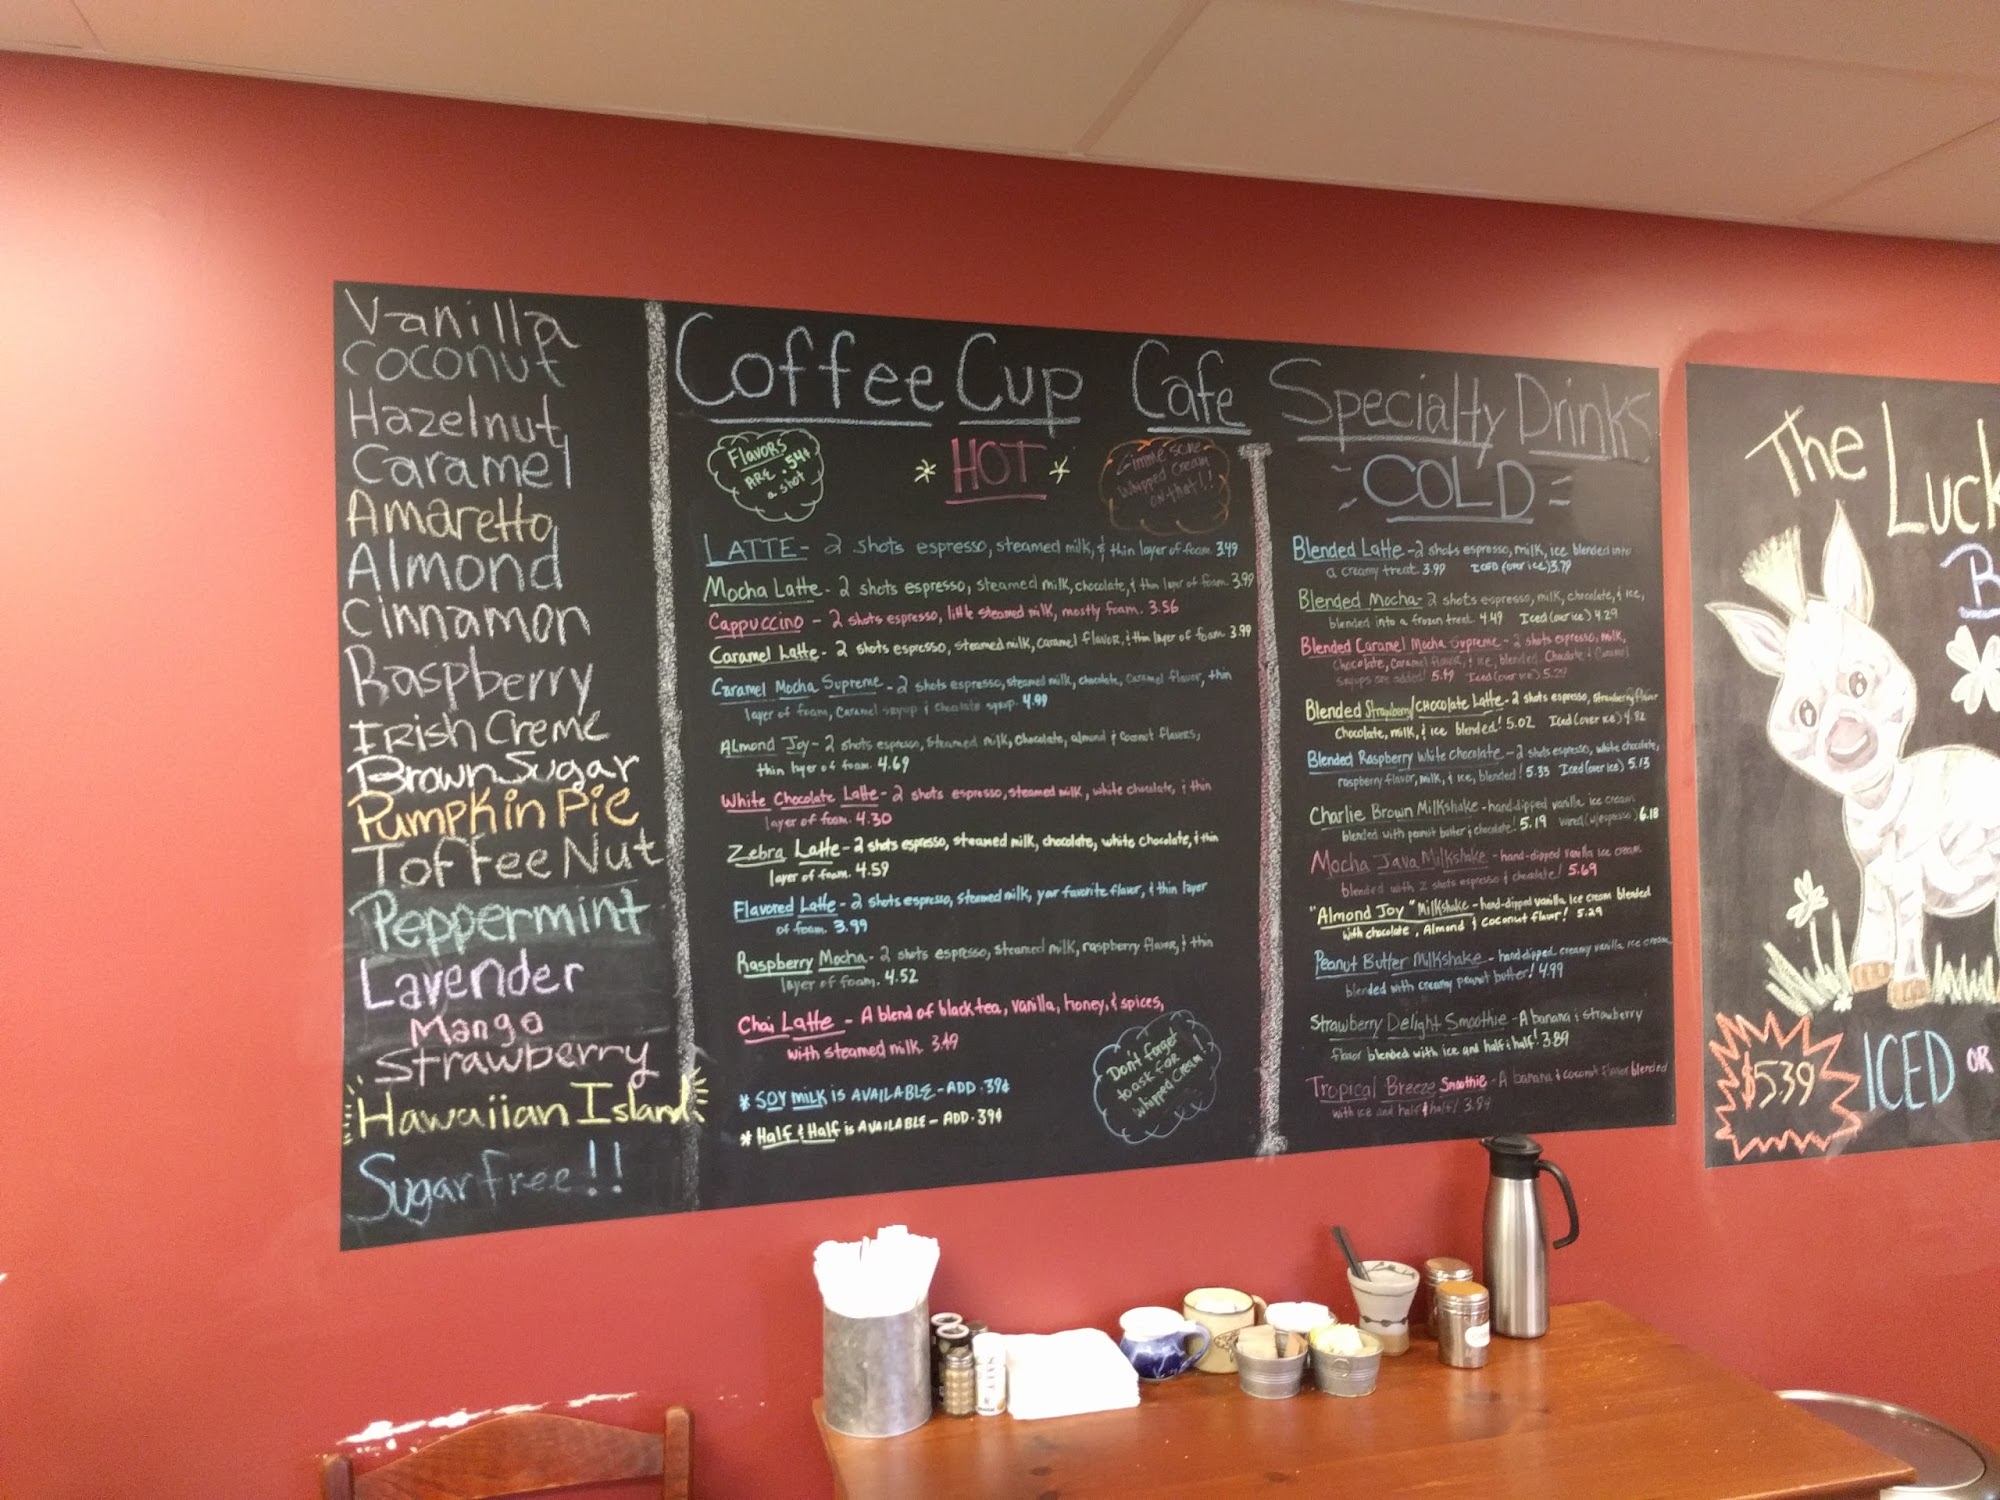 Vanilla
Coconut
Hazelnut
Caramel
Amaretto
Almond
Cinnamon
Raspberry
Irish Creme
Brown Sugar
Pumpkin Pie
Toffee Nut
Peppermint
Lavender
Mango
Strawberry
Hawaiian Island
Sugar free!!
Coffee Cup Cafe Specialty Drinks
Flavors
ARE .54¢
a shot
* HOT *
Gimme some
Whipped Cream
on that!!
LATTE - 2 shots espresso, steamed milk, & thin layer of foam. 3.49
Mocha Latte - 2 shots espresso, steamed milk, chocolate, & thin layer of foam. 3.99
Cappuccino - 2 shots espresso, little steamed milk, mostly foam. 3.56
Caramel Latte - 2 shots espresso, steamed milk, caramel flavor, & thin layer of foam. 3.99
Caramel Mocha Supreme - 2 shots espresso, steamed milk, chocolate, caramel flavor, thin
layer of foam, caramel syrup & chocolate syrup. 4.99
Almond Joy - 2 shots espresso, steamed milk, chocolate, almond & coconut flavors,
thin layer of foam. 4.69
White Chocolate Latte - 2 shots espresso, steamed milk, white chocolate, & thin
layer of foam. 4.30
Zebra Latte - 2 shots espresso, steamed milk, chocolate, white chocolate, & thin
layer of foam. 4.59
Flavored Latte - 2 shots espresso, steamed milk, your favorite flavor, & thin layer
of foam. 3.99
Raspberry Mocha - 2 shots espresso, steamed milk, raspberry flavor, & thin
layer of foam. 4.52
Chai Latte - A blend of black tea, vanilla, honey, & spices,
with steamed milk. 3.49
* SOY MILK is AVAILABLE - ADD .39¢
* Half & Half is AVAILABLE - ADD .39¢
Don't forget
to ask for
whipped cream!
COLD
Blended Latte - 2 shots espresso, milk, ice blended into
a creamy treat. 3.99 ICED (over ice) 3.79
Blended Mocha - 2 shots espresso, milk, chocolate, & ice,
blended into a frozen treat. 4.49 Iced (over ice) 4.29
Blended Caramel Mocha Supreme - 2 shots espresso, milk,
chocolate, caramel flavor, & ice, blended. Chocolate & Caramel
syrups are added! 5.49 Iced (over ice) 5.29
Blended Strawberry/chocolate Latte - 2 shots espresso, strawberry flavor
chocolate, milk, & ice blended! 5.02 Iced (over ice) 4.82
Blended Raspberry white chocolate - 2 shots espresso, white chocolate,
raspberry flavor, milk, & ice, blended! 5.33 Iced (over ice) 5.13
Charlie Brown Milkshake - hand-dipped vanilla ice cream
blended with peanut butter & chocolate! 5.19 wired (w/espresso) 6.18
Mocha Java Milkshake - hand-dipped vanilla ice cream
blended with 2 shots espresso & chocolate! 5.69
"Almond Joy" Milkshake - hand-dipped vanilla ice cream blended
with chocolate, Almond & coconut flavor! 5.29
Peanut Butter Milkshake - hand-dipped creamy vanilla ice cream
blended with creamy peanut butter! 4.99
Strawberry Delight Smoothie - A banana & strawberry
flavor blended with ice and half & half! 3.89
Tropical Breeze Smoothie - A banana & coconut flavor blended
with ice and half & half! 3.89
The Luck
B
$5.39
ICED OR